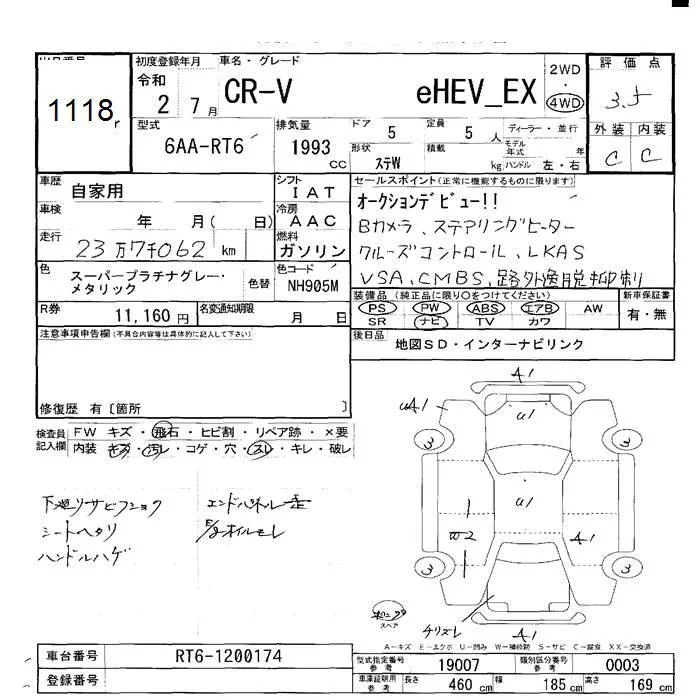 1118r
初度登録年月
令和
2 7月
車名・グレード
CR-V eHEV_EX
2WD
4WD
評価点
3.5
型式
6AA-RT6
排気量
1993
CC
ドア
5
定員
5
人
ディーラー・並行
形状
ステW
積載
kg
モデル
年式
年
ハンドル 左・右
外装 内装
C C
車歴
自家用
シフト
IAT
車検
年 月( 日)
冷房
AAC
走行
23万7千062 km
燃料
ガソリン
セールスポイント(正常に機能するものに限ります)
オークションデビュー!!
Bカメラ、ステアリングヒーター
クルーズコントロール、LKAS
VSA、CMBS、路外逸脱抑制
色
スーパープラチナグレー・
メタリック
色替
色コード
NH905M
装備品(純正品に限り○をつけてください)
PS PW ABS エアB AW
SR ナビ TV カワ
新車保証書
有・無
R券
11,160 円
名変通知期限
月 日
後日品
地図SD・インターナビリンク
注意事項申告欄(不具合内容等は具体的に記入して下さい)
修復歴 有〔箇所 〕
検査員
記入欄
FW キズ・飛石・ヒビ割・リペア跡・×要
内装 キズ・汚レ・コゲ・穴・スレ・キレ・破レ
下廻リサビフショク
シートヘタリ
ハンドルハゲ
エンドパネル歪
E/gオイルモレ
A1
uA1
u1
3
3
u1
W2
A1
3
3
スペア
チリズレ
A1
A-キズ E-エクボ U-凹み W-補修跡 S-サビ C-腐食 XX-交換済
車台番号
RT6-1200174
登録番号
型式指定番号
参考
19007
類別区分番号
参考
0003
車庫証明用
参考
長さ
460 cm
幅
185 cm
高さ
169 cm